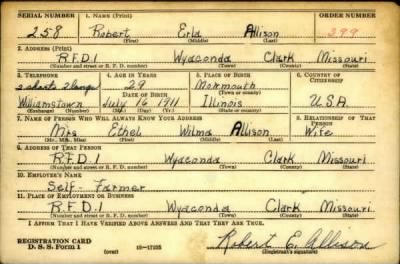 SERIAL NUMBER 1. NAME (Print) ORDER NUMBER
258 Robert Erld Allison 299
(First) (Middle) (Last)
2. ADDRESS (Print)
R.F.D. 1 Wyaconda Clark Missouri
(Number and street or R. F. D. number) (Town) (County) (State)
3. TELEPHONE 4. AGE IN YEARS 5. PLACE OF BIRTH 6. COUNTRY OF CITIZENSHIP
2 shorts 2 longs 29 Monmouth
DATE OF BIRTH (Town or county)
Williamstown July 16 1911 Illinois U.S.A.
(Exchange) (Number) (Mo.) (Day) (Yr.) (State or country)
7. NAME OF PERSON WHO WILL ALWAYS KNOW YOUR ADDRESS 8. RELATIONSHIP OF THAT PERSON
Mrs Ethel Wilma Allison Wife
(Mr., Mrs., Miss) (First) (Middle) (Last)
9. ADDRESS OF THAT PERSON
R.F.D. 1 Wyaconda Clark Missouri
(Number and street or R. F. D. number) (Town) (County) (State)
10. EMPLOYER'S NAME
Self - Farmer
11. PLACE OF EMPLOYMENT OR BUSINESS
R.F.D. 1 Wyaconda Clark Missouri
(Number and street or R. F. D. number) (Town) (County) (State)
I AFFIRM THAT I HAVE VERIFIED ABOVE ANSWERS AND THAT THEY ARE TRUE.
REGISTRATION CARD
D. S. S. Form 1 (over) 16-17105 Robert E. Allison
(Registrant's signature)